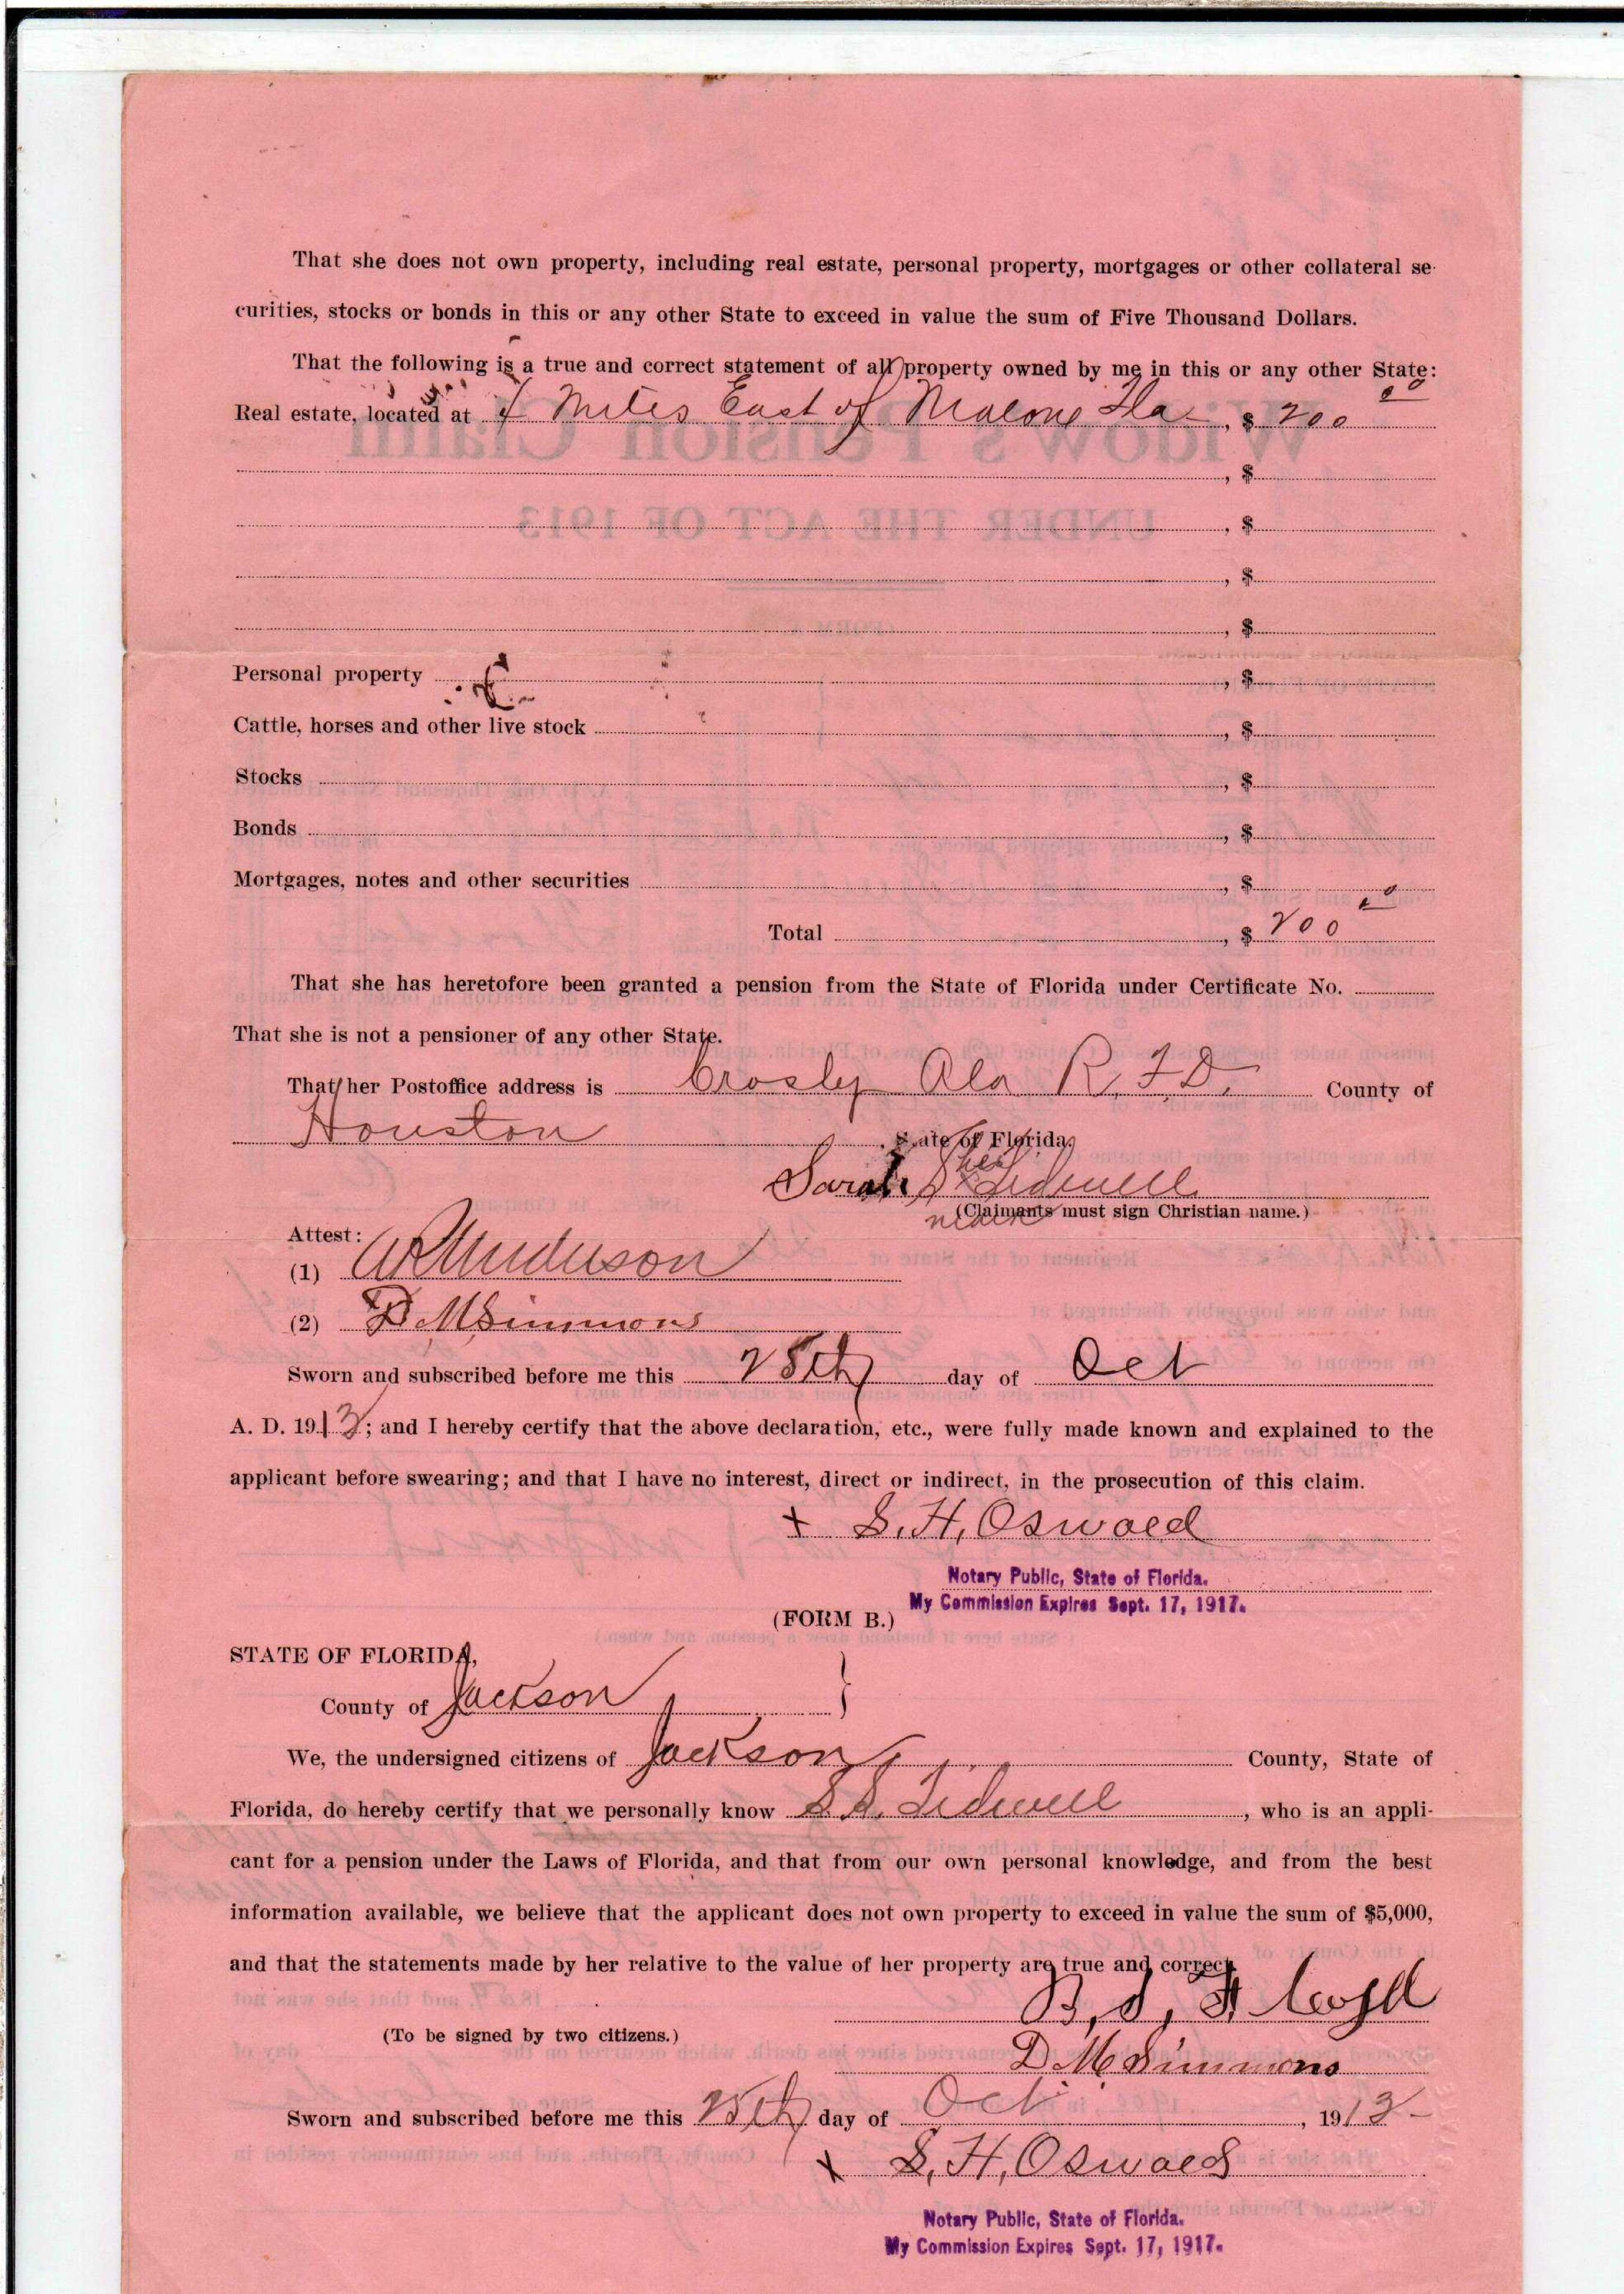 That she does not own property, including real estate, personal property, mortgages or other collateral se-
curities, stocks or bonds in this or any other State to exceed in value the sum of Five Thousand Dollars.
That the following is a true and correct statement of all property owned by me in this or any other State:
Real estate, located at 7 Miles East of Malone Fla, $ 200 00
, $
, $
, $
, $
Personal property , $
Cattle, horses and other live stock , $
Stocks , $
Bonds , $
Mortgages, notes and other securities , $
Total , $ 200 00
That she has heretofore been granted a pension from the State of Florida under Certificate No.
That she is not a pensioner of any other State.
That her Postoffice address is Crosby Ala R.F.D. County of
Houston , State of Florida,
Sarah S her x Tidwell
mark (Claimants must sign Christian name.)
Attest:
(1)
(2) D M Simmons
Sworn and subscribed before me this 25th day of Oct
A. D. 1913; and I hereby certify that the above declaration, etc., were fully made known and explained to the
applicant before swearing; and that I have no interest, direct or indirect, in the prosecution of this claim.
x S. H. Oswald
Notary Public, State of Florida.
My Commission Expires Sept. 17, 1917.
(FORM B.)
STATE OF FLORIDA,
County of Jackson }
We, the undersigned citizens of Jackson County, State of
Florida, do hereby certify that we personally know S S. Tidwell, who is an appli-
cant for a pension under the Laws of Florida, and that from our own personal knowledge, and from the best
information available, we believe that the applicant does not own property to exceed in value the sum of $5,000,
and that the statements made by her relative to the value of her property are true and correct.
(To be signed by two citizens.)
D. M. Simmons
Sworn and subscribed before me this 25th day of Oct , 1913-
x S. H. Oswald
Notary Public, State of Florida.
My Commission Expires Sept. 17, 1917.